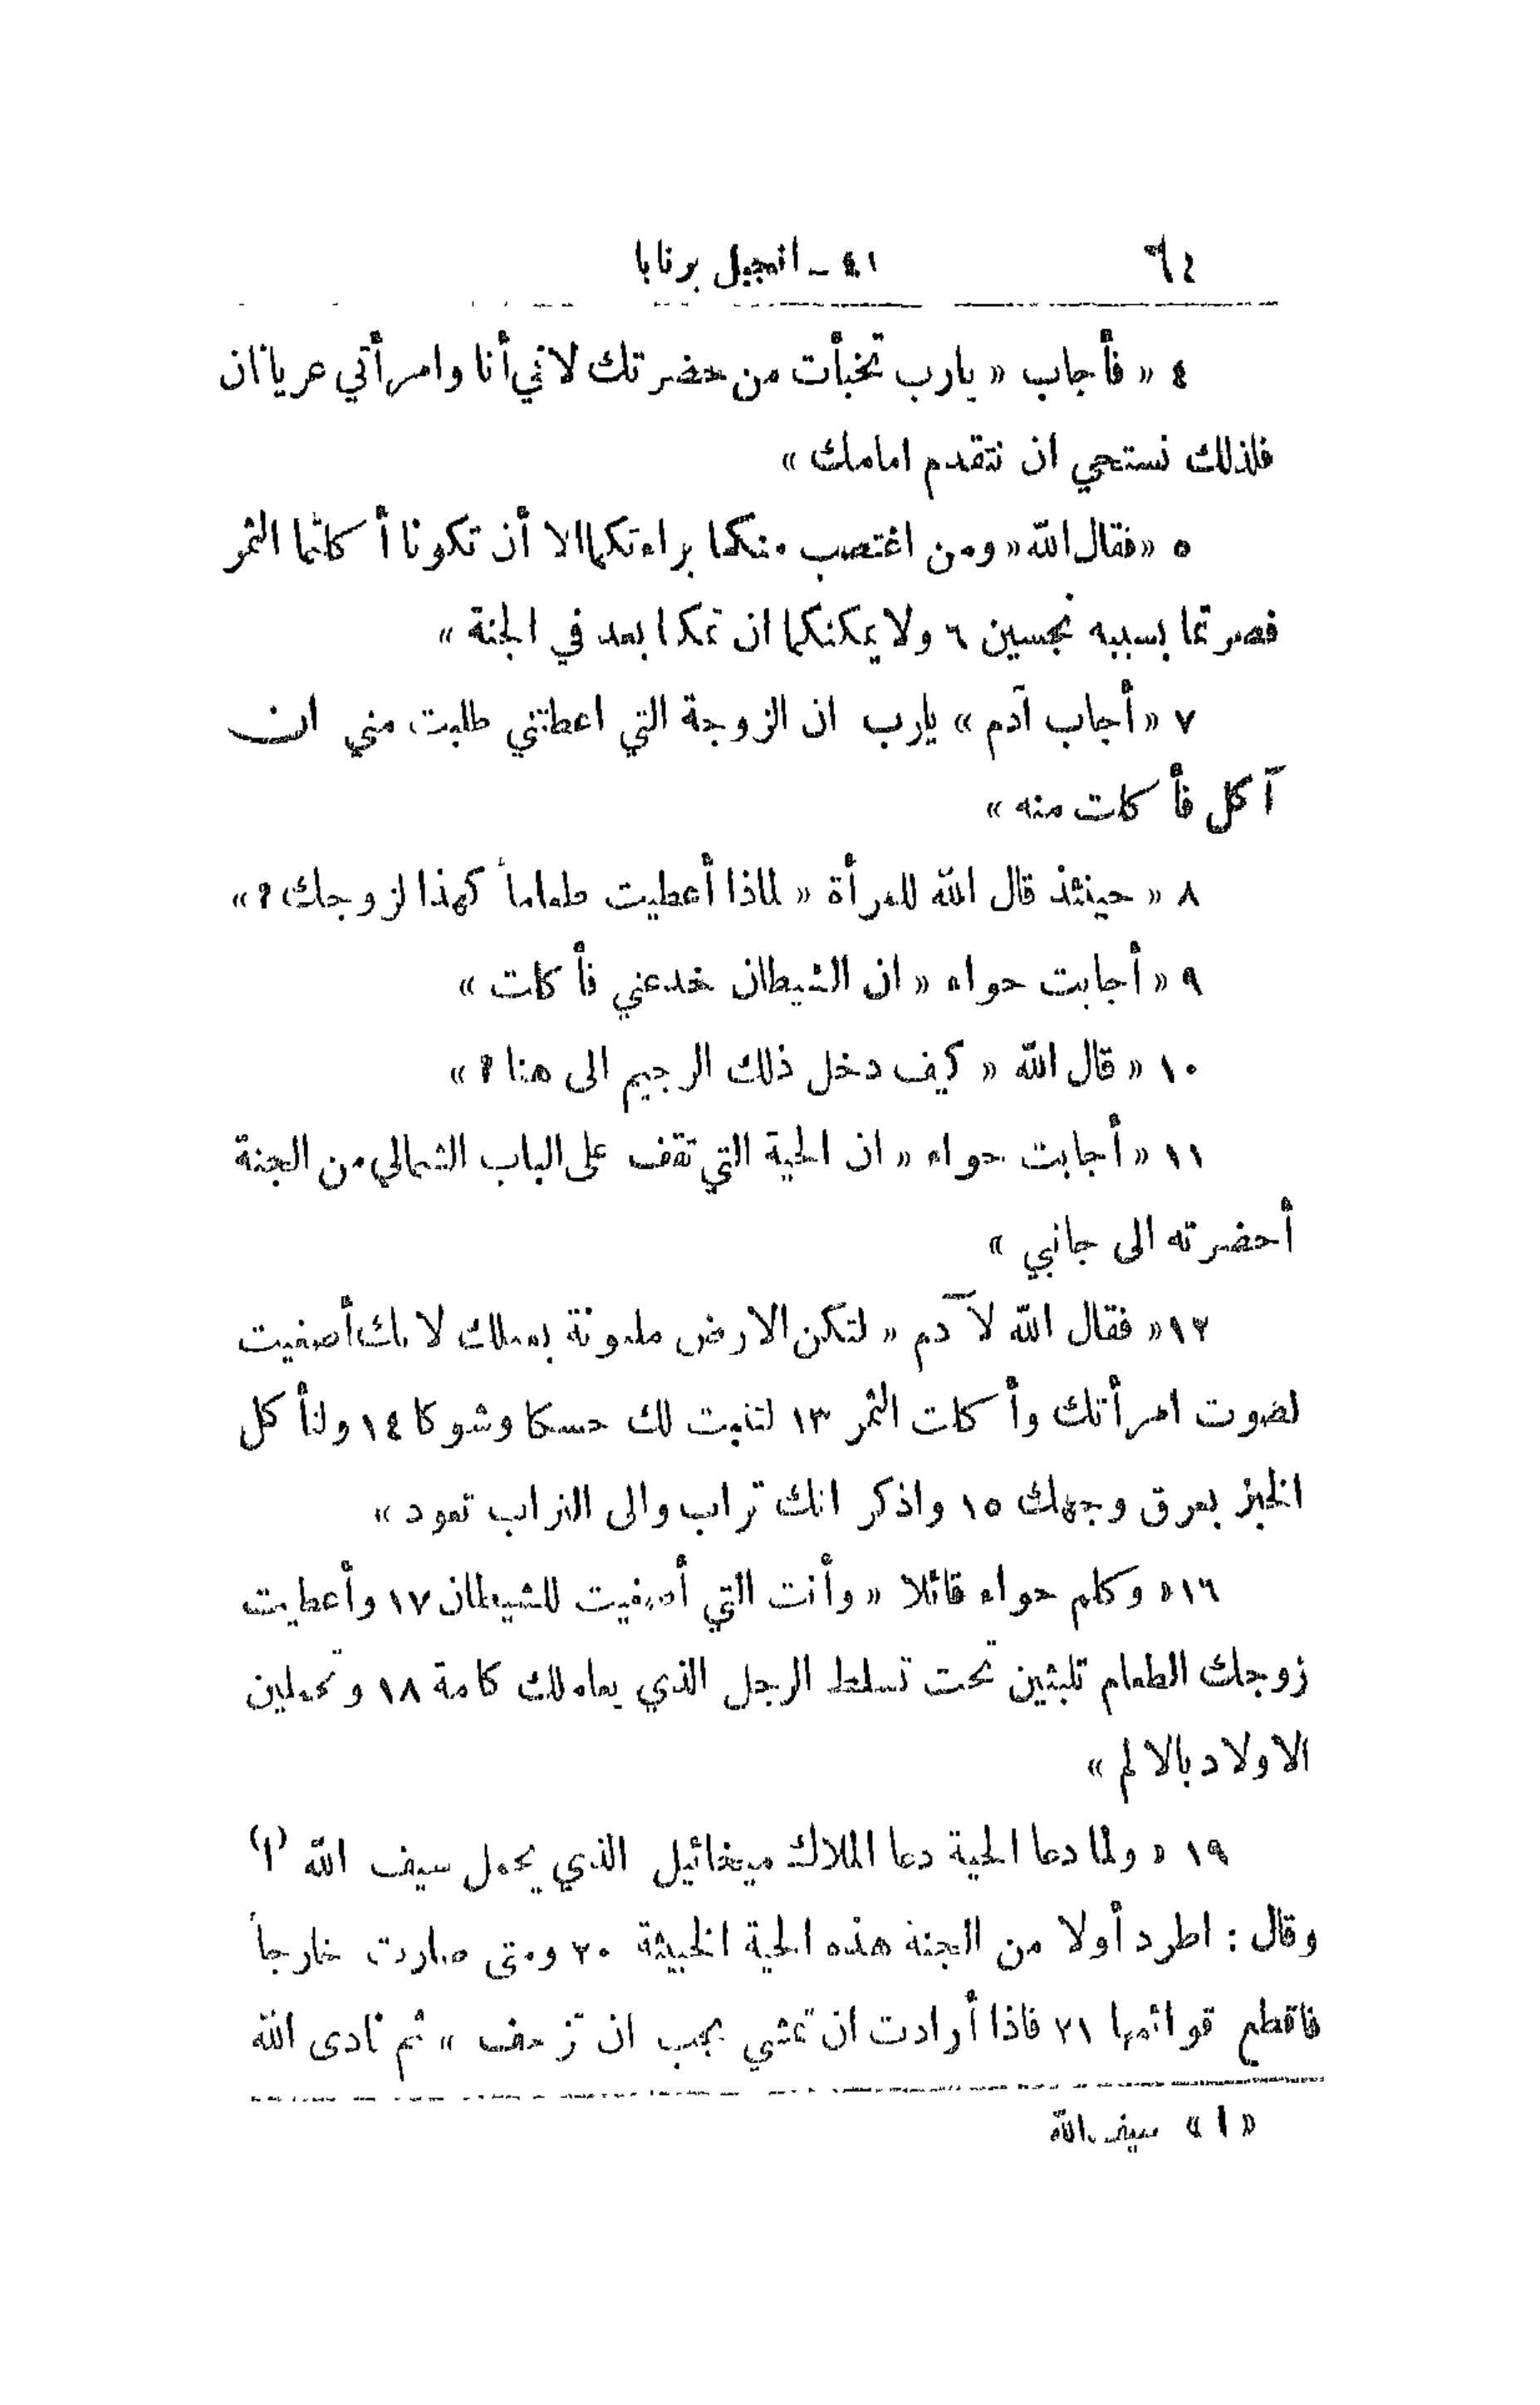 ٦٤ ٤١ – انجيل برنابا
٤ « فأجاب « يارب تخبأت من حضرتك لاني أنا وامرأتي عريانان
فلذلك نستحي ان نتقدم امامك »
٥ « فقال الله « ومن اغتصب منكما براءتكما الا أن تكونا أكلتما الثمر
فصرتما بسببه نجسين ٦ ولا يمكنكما ان تمكثا بعد في الجنة »
٧ « أجاب آدم » يارب ان الزوجة التي اعطيتني طلبت مني ان
آكل فأكلت منه »
٨ « حينئذ قال الله للمرأة « لماذا أعطيت طعاماً كهذا لزوجك ؟ »
٩ « أجابت حواء « ان الشيطان خدعني فأكلت »
١٠ « قال الله « كيف دخل ذلك الرجيم الى هنا ؟ »
١١ « أجابت حواء « ان الحية التي تقف على الباب الشمالي من الجنة
أحضرته الى جانبي »
١٢ « فقال الله لآدم « لتكن الارض ملعونة بعملك لانك أصغيت
لصوت امرأتك وأكلت الثمر ١٣ لتنبت لك حسكا وشوكا ١٤ ولتأكل
الخبز بعرق وجهك ١٥ واذكر انك تراب والى التراب تعود »
١٦ « وكلم حواء قائلا « وأنت التي أصغيت للشيطان ١٧ وأعطيت
زوجك الطعام تلبثين تحت تسلط الرجل الذي يعاملك كامة ١٨ وتحملين
الاولاد بالالم »
١٩ « ولما دعا الحية دعا الملاك ميخائيل الذي يحمل سيف الله (١)
وقال : اطرد أولا من الجنة هذه الحية الخبيثة ٢٠ ومتى صارت خارجاً
فاقطع قوائمها ٢١ فاذا أرادت ان تمشي يجب ان تزحف » ثم نادى الله
« ١ » سيف الله